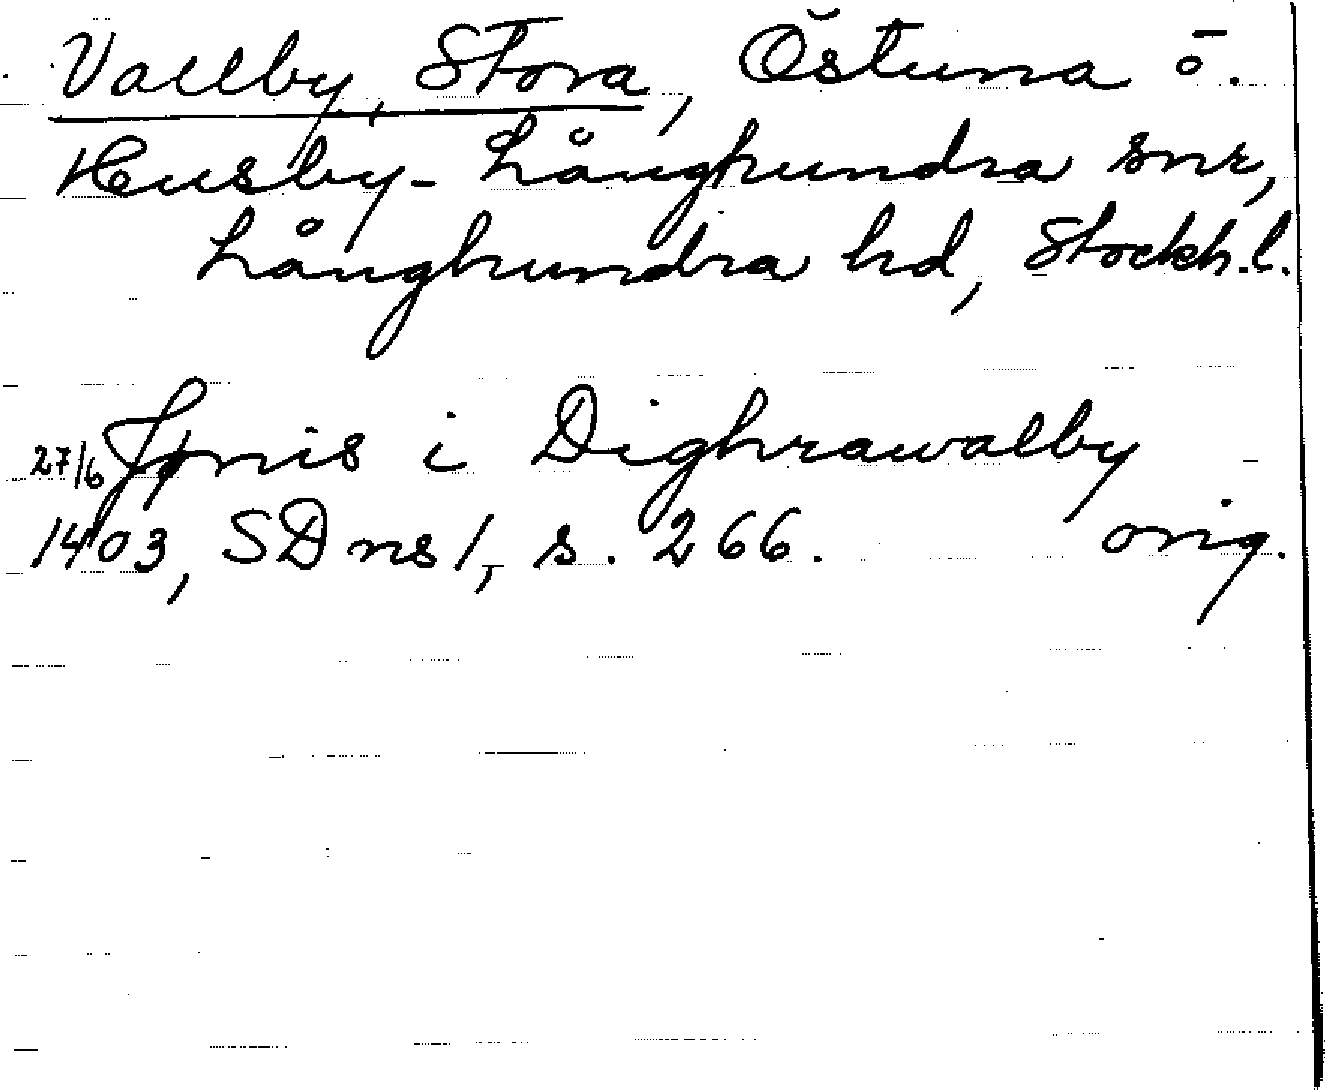 Vallby, Stora, Östuna o.
Husby-Långhundra snr,
Långhundra hd, Stockh.l.
27/6 Jonis i Dighrawalby
1403, SD ns 1, s. 266. orig.